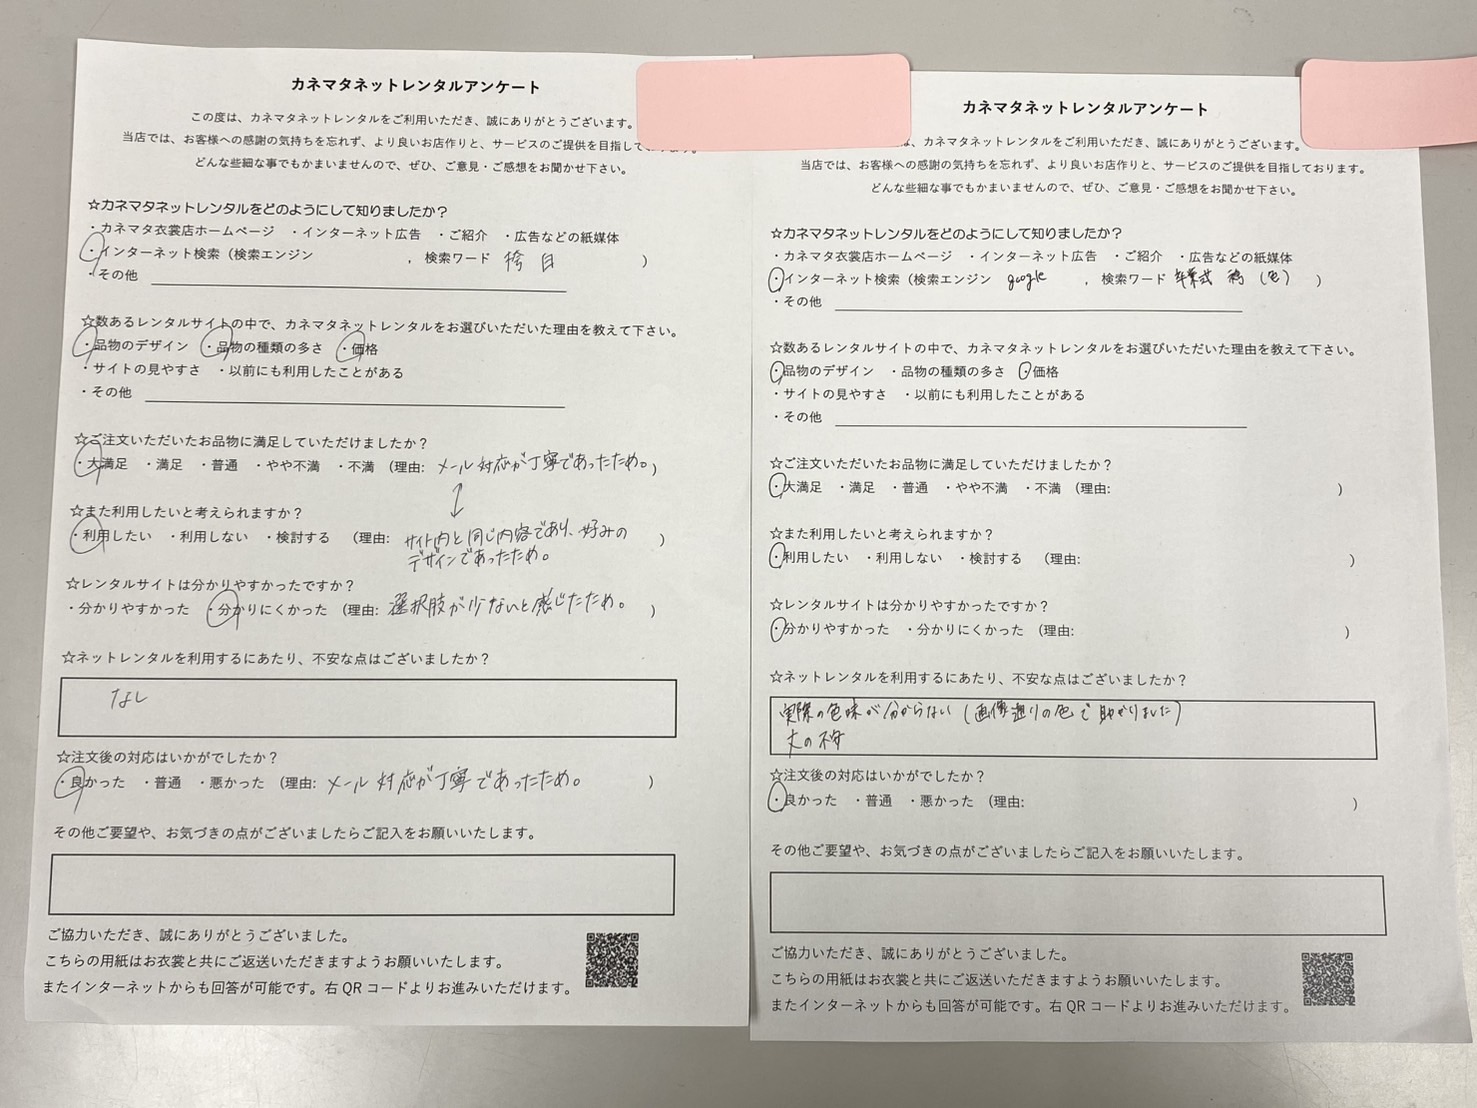 カネマタネットレンタルアンケート
この度は、カネマタネットレンタルをご利用いただき、誠にありがとうございます。
当店では、お客様への感謝の気持ちを忘れず、より良いお店作りと、サービスのご提供を目指しております。
どんな些細な事でもかまいませんので、ぜひ、ご意見・ご感想をお聞かせ下さい。
☆カネマタネットレンタルをどのようにして知りましたか？
・カネマタ衣裳店ホームページ ・インターネット広告 ・ご紹介 ・広告などの紙媒体
・インターネット検索（検索エンジン ， 検索ワード 袴 目 ）
・その他
☆数あるレンタルサイトの中で、カネマタネットレンタルをお選びいただいた理由を教えて下さい。
・品物のデザイン ・品物の種類の多さ ・価格
・サイトの見やすさ ・以前にも利用したことがある
・その他
☆ご注文いただいたお品物に満足していただけましたか？
・大満足 ・満足 ・普通 ・やや不満 ・不満 （理由: メール対応が丁寧であったため。）
☆また利用したいと考えられますか？
・利用したい ・利用しない ・検討する （理由: サイト内と同じ内容であり、好みの ）
デザインであったため。
☆レンタルサイトは分かりやすかったですか？
・分かりやすかった ・分かりにくかった （理由: 選択肢が少ないと感じたため。 ）
☆ネットレンタルを利用するにあたり、不安な点はございましたか？
なし
☆注文後の対応はいかがでしたか？
・良かった ・普通 ・悪かった （理由: メール対応が丁寧であったため。 ）
その他ご要望や、お気づきの点がございましたらご記入をお願いいたします。
ご協力いただき、誠にありがとうございました。
こちらの用紙はお衣裳と共にご返送いただきますようお願いいたします。
またインターネットからも回答が可能です。右 QR コードよりお進みいただけます。
カネマタネットレンタルアンケート
は、カネマタネットレンタルをご利用いただき、誠にありがとうございます。
当店では、お客様への感謝の気持ちを忘れず、より良いお店作りと、サービスのご提供を目指しております。
どんな些細な事でもかまいませんので、ぜひ、ご意見・ご感想をお聞かせ下さい。
☆カネマタネットレンタルをどのようにして知りましたか？
・カネマタ衣裳店ホームページ ・インターネット広告 ・ご紹介 ・広告などの紙媒体
・インターネット検索（検索エンジン google ， 検索ワード 卒業式 袴 （色） ）
・その他
☆数あるレンタルサイトの中で、カネマタネットレンタルをお選びいただいた理由を教えて下さい。
・品物のデザイン ・品物の種類の多さ ・価格
・サイトの見やすさ ・以前にも利用したことがある
・その他
☆ご注文いただいたお品物に満足していただけましたか？
・大満足 ・満足 ・普通 ・やや不満 ・不満 （理由: ）
☆また利用したいと考えられますか？
・利用したい ・利用しない ・検討する （理由: ）
☆レンタルサイトは分かりやすかったですか？
・分かりやすかった ・分かりにくかった （理由: ）
☆ネットレンタルを利用するにあたり、不安な点はございましたか？
実際の色味が分からない（画像通りの色で助かりました）
丈の不安
☆注文後の対応はいかがでしたか？
・良かった ・普通 ・悪かった （理由: ）
その他ご要望や、お気づきの点がございましたらご記入をお願いいたします。
ご協力いただき、誠にありがとうございました。
こちらの用紙はお衣裳と共にご返送いただきますようお願いいたします。
またインターネットからも回答が可能です。右 QR コードよりお進みいただけます。